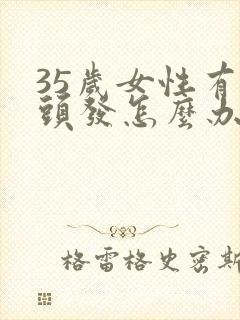 35歲女性有
頭發怎麼办
格雷格史密斯